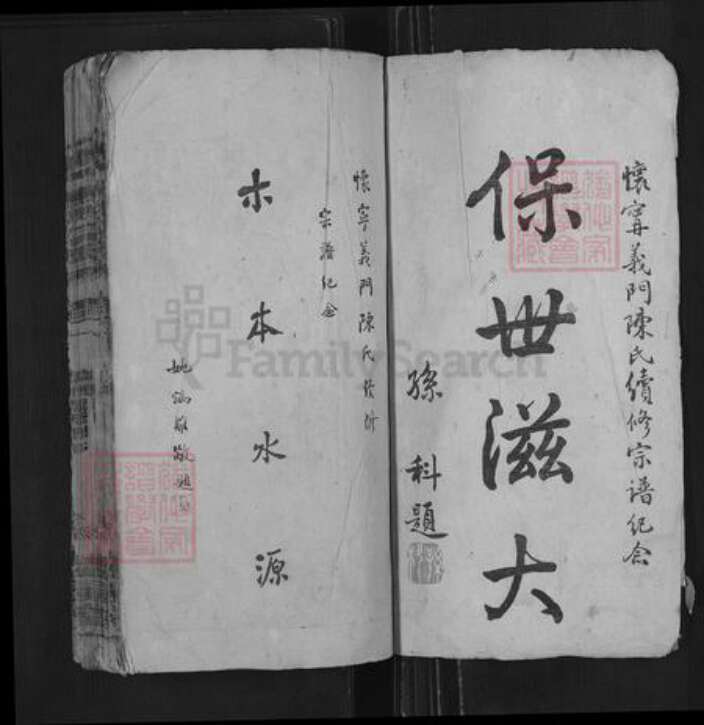 懷甯義門陳氏續修宗譜紀念
保世滋大
孫科題
懷甯義門陳氏
宗譜紀念
木本水源
敬題
FamilySearch